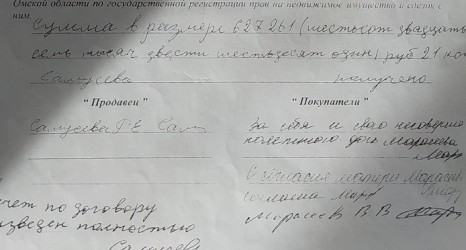 Омской области по государственной регистрации прав на недвижимое имущество и сделок с
ним.
Сумма в размере 627261 (шестьсот двадцать
семь тысяч двести шестьдесят один) руб 21 коп
получено.
" Продавец " " Покупатели "
За себя и свою несовершен
нолетнюю дочь
С согласия матери
согласна
чет по договору
изведен полностью
В В